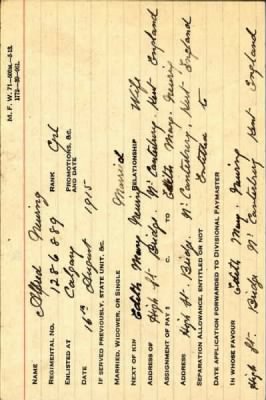 M. F. W. 71
1772-39-901.
NAME Albert
REGIMENTAL NO. 1286889 RANK Cpl
ENLISTED AT Calgary PROMOTIONS, &c. AND DATE
DATE 16th August 1915
IF SERVED PREVIOUSLY, STATE UNIT, &c.
MARRIED, WIDOWER, OR SINGLE Married
NEXT OF KIN Edith May RELATIONSHIP Wife
ADDRESS OF High St. Bridge Nr Canterbury, Kent England
ASSIGNMENT OF PAY $ c. TO Edith May
ADDRESS High St. Bridge Nr Canterbury, Kent England
SEPARATION ALLOWANCE, ENTITLED OR NOT Entitled to
DATE APPLICATION FORWARDED TO DIVISIONAL PAYMASTER
IN WHOSE FAVOUR Edith May
High St. Bridge Nr Canterbury England